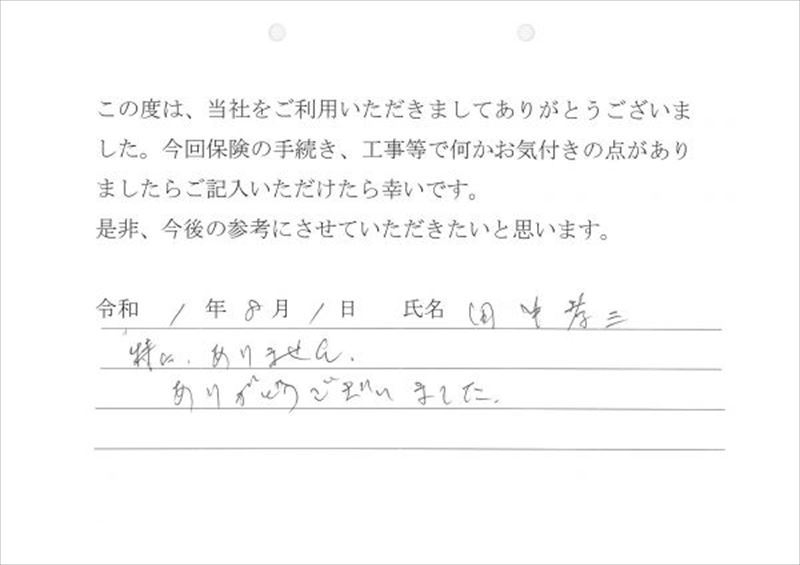 この度は、当社をご利用いただきましてありがとうございま
した。今回保険の手続き、工事等で何かお気付きの点があり
ましたらご記入いただけたら幸いです。
是非、今後の参考にさせていただきたいと思います。
令和 1 年 8 月 1 日 氏名 田中 三
特に、ありません。
ありがとうございました。